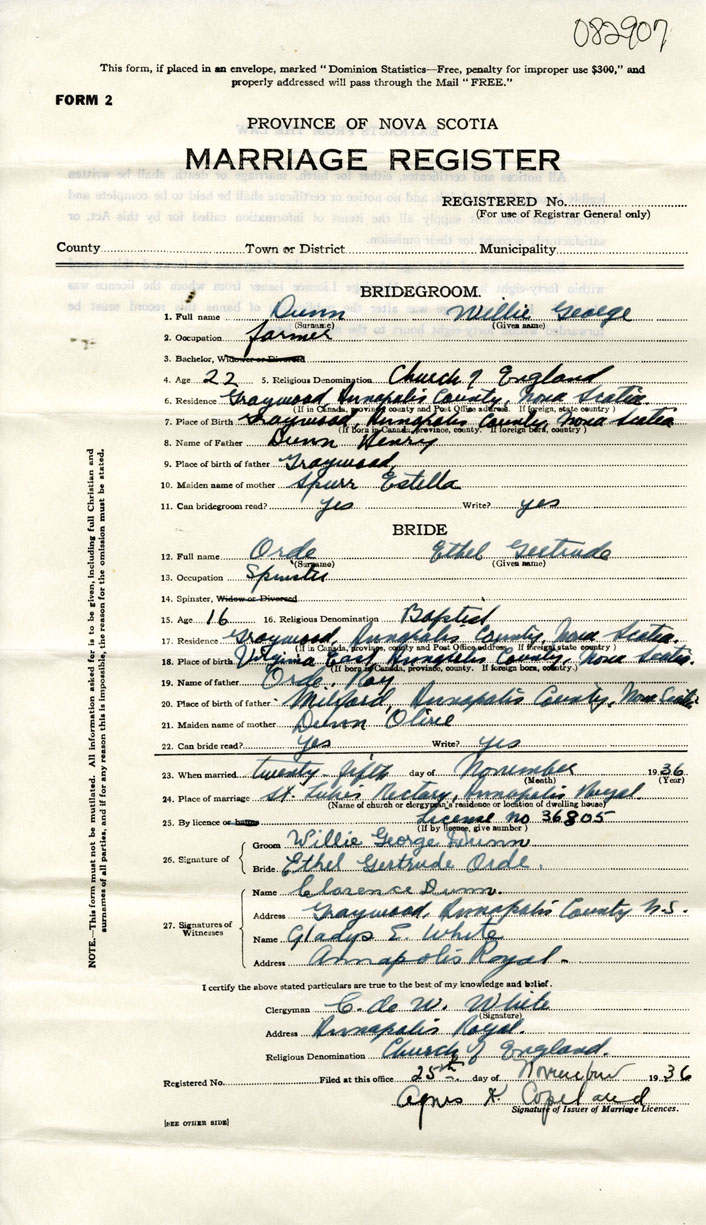 082907
This form, if placed in an envelope, marked "Dominion Statistics—Free, penalty for improper use $300," and
properly addressed will pass through the Mail "FREE."
FORM 2
PROVINCE OF NOVA SCOTIA
MARRIAGE REGISTER
REGISTERED No.
(For use of Registrar General only)
County Town or District Municipality
BRIDEGROOM.
1. Full name Dunn Willie George
(Surname) (Given name)
2. Occupation farmer
3. Bachelor, Widower or Divorced
4. Age 22 5. Religious Denomination Church of England
6. Residence Graywood, Annapolis County, Nova Scotia.
(If in Canada, province, county and Post Office address. If foreign, state country)
7. Place of Birth Graywood, Annapolis County, Nova Scotia
(If Born in Canada, province, county. If foreign born, country)
8. Name of Father Dunn Henry
9. Place of birth of father Graywood,
10. Maiden name of mother Spurr Estella
11. Can bridegroom read? yes Write? yes
BRIDE
12. Full name Orde Ethel Gertrude
(Surname) (Given name)
13. Occupation Spinster
14. Spinster, Widow or Divorced
15. Age 16 16. Religious Denomination Baptist
17. Residence Graywood, Annapolis County, Nova Scotia.
(If in Canada, province, county and Post Office address. If foreign state country)
18. Place of birth Virginia East, Annapolis County, Nova Scotia.
(If born in Canada, province, county. If foreign born, country.)
19. Name of father Orde, Roy
20. Place of birth of father Milford, Annapolis County, Nova Scotia
21. Maiden name of mother Olive
22. Can bride read? yes Write? yes
23. When married twenty-fifth day of November 1936
(Month) (Year)
24. Place of marriage St. Luke's Rectory, Annapolis Royal.
(Name of church or clergyman's residence or location of dwelling house)
25. By licence or banns License no 36805
(If by licence, give number)
26. Signature of
Groom Willie George Dunn
Bride Ethel Gertrude Orde.
27. Signatures of Witnesses
Name Clarence Dunn.
Address Graywood, Annapolis County N.S.
Name Gladys E. White
Address Annapolis Royal.
I certify the above stated particulars are true to the best of my knowledge and belief.
Clergyman C. de W. White
(Signature)
Address Annapolis Royal.
Religious Denomination Church of England.
Registered No. Filed at this office 25th day of November 1936
Agnes K Copeland
Signature of Issuer of Marriage Licences.
[SEE OTHER SIDE]
NOTE.—This form must not be mutilated. All information asked for is to be given, including full Christian and
surnames of all parties, and if for any reason this is impossible, the reason for the omission must be stated.